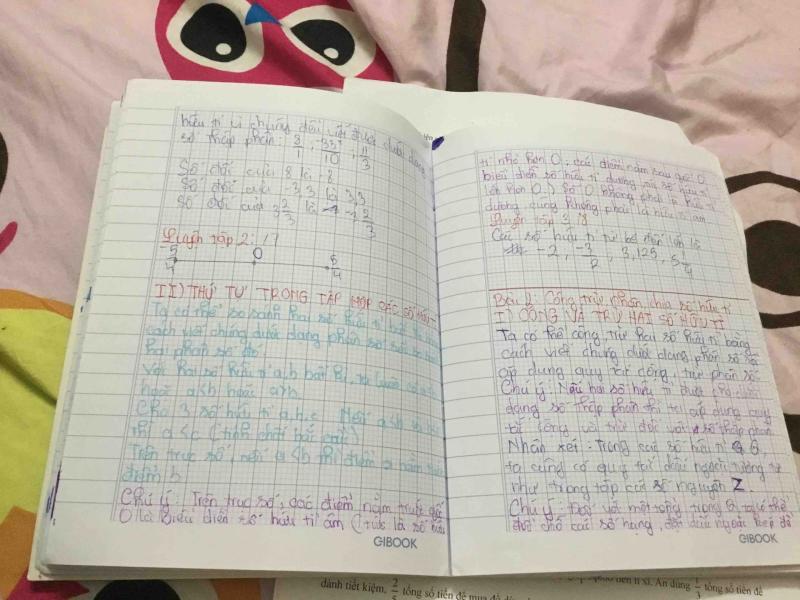 hữu tỉ vì chúng đều viết được dưới dạng
số thập phân: 8/1, -33/10, 11/3
Số đối của 8 là -8
Số đối của -3,3 là 3,3
Số đối của 3 2/3 là -3 2/3
Luyện tập 2: 17
-5/4 0 5/4
II) THỨ TỰ TRONG TẬP HỢP CÁC SỐ HỮU
Ta có thể so sánh hai số hữu tỉ bất kì
cách viết chúng dưới dạng phân số rồi so
hai phân số đó
Với hai số hữu tỉ a, b bất kì, ta luôn có
hoặc a<b hoặc a>b
Cho 3 số hữu tỉ a, b, c. Nếu a<b và b
thì a<c (tính chất bắc cầu)
Trên trục số, nếu a<b thì điểm a nằm trước
điểm b
Chú ý: Trên trục số, các điểm nằm trước gốc
O là biểu diễn số hữu tỉ âm (tức là số hữu
GIBOOK
tỉ nhỏ hơn 0; các điểm nằm sau gốc O
biểu diễn số hữu tỉ dương
lớn hơn 0). Số 0 không phải là hữu tỉ
dương cũng không phải là hữu tỉ âm
Luyện tập 3
Các số hữu tỉ từ bé đến lớn là
-2, -3/2, 3,125, 5 1/4
Bài 2: Cộng, trừ, nhân, chia số hữu tỉ
I) CỘNG VÀ TRỪ HAI SỐ HỮU TỈ
Ta có thể cộng, trừ hai số hữu tỉ bằng
cách viết chúng dưới dạng phân số rồi
áp dụng quy tắc cộng, trừ phân số.
Chú ý: Nếu hai số hữu tỉ được
dạng số thập phân thì ta áp dụng quy
tắc cộng và trừ đối với số thập phân
Nhận xét: Trong các số hữu tỉ Q
ta cũng có quy tắc dấu ngoặc tương tự
như trong tập các số nguyên Z.
Chú ý: Đối với một tổng trong Q, ta có thể
đổi chỗ các số hạng, đặt dấu ngoặc để
GIBOOK
dành tiết kiệm, 2/5 tổng số tiền để mua đồ
tiền lì xì. An dùng 1/3 tổng số tiền để